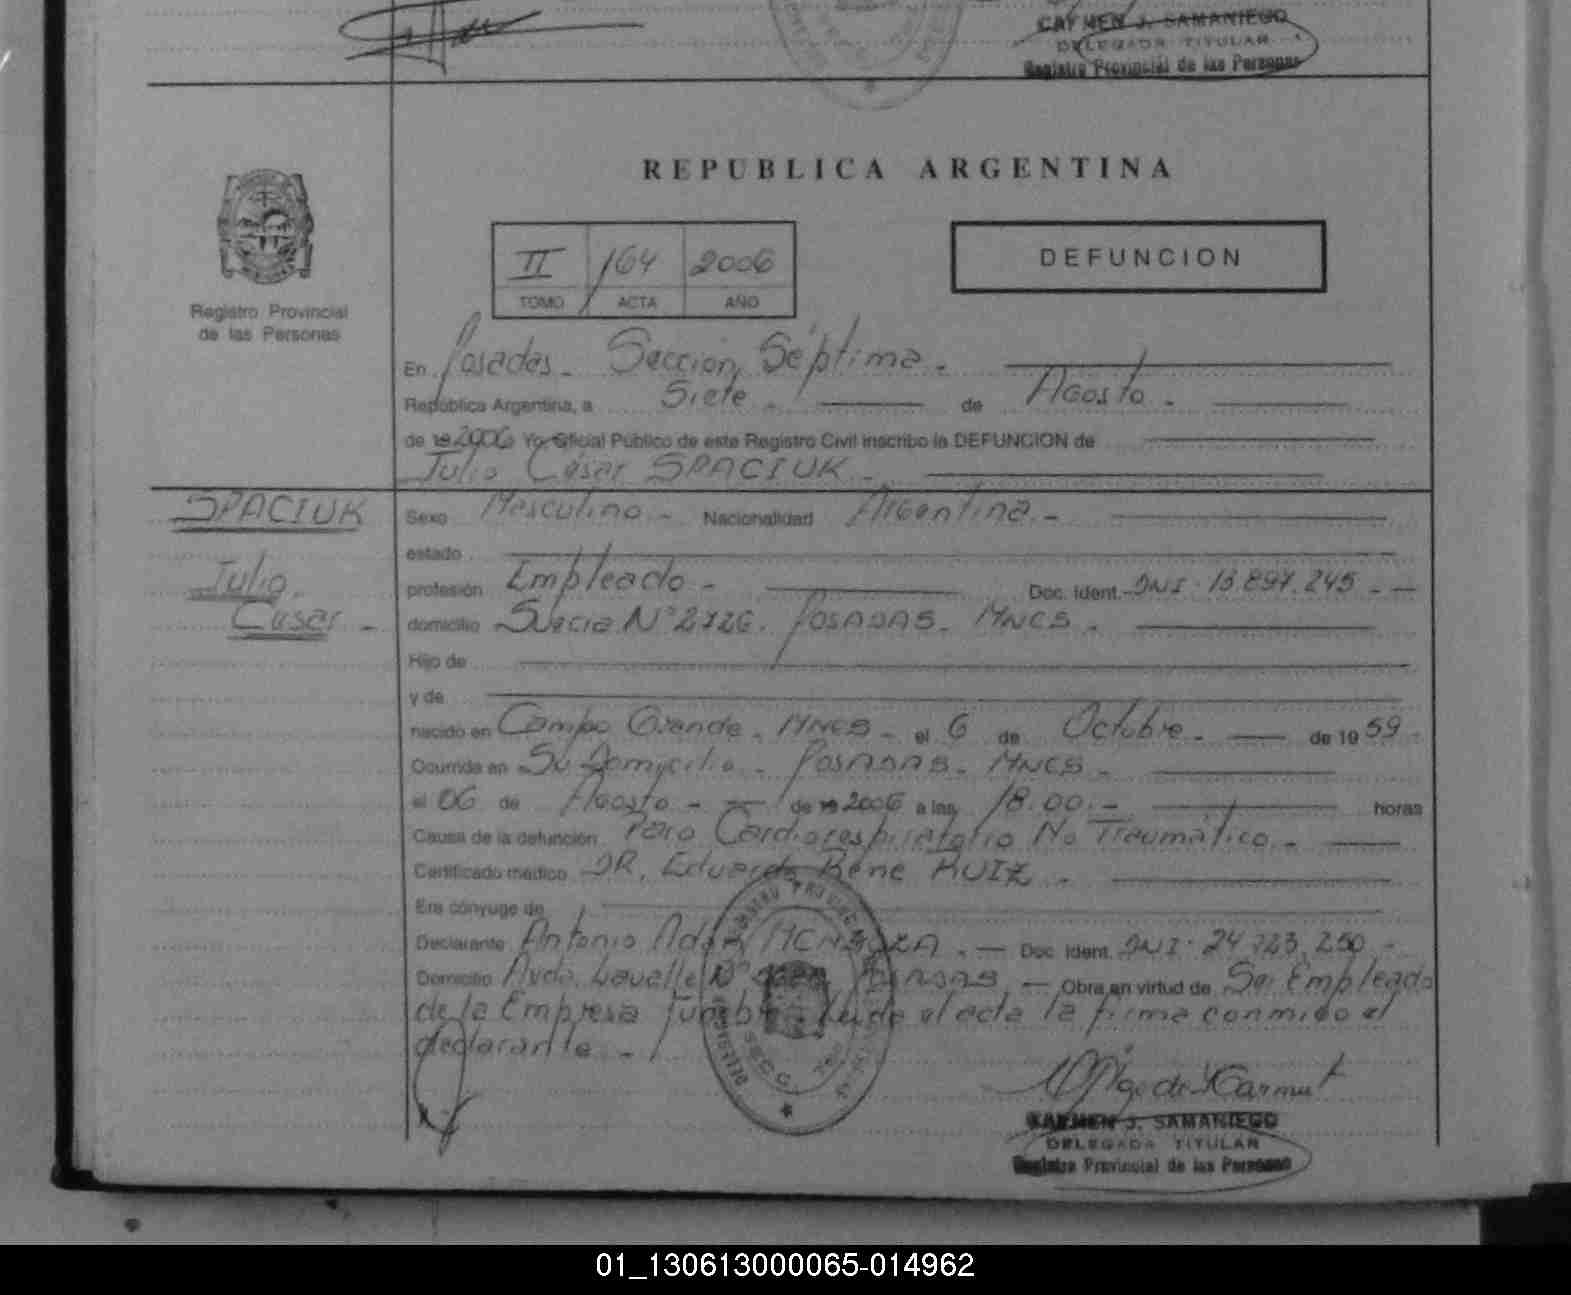 CARMEN J. SAMANIEGO
DELEGADA TITULAR
Registro Provincial de las Personas
REPUBLICA ARGENTINA
Registro Provincial
de las Personas
II 164 2006
TOMO ACTA AÑO
DEFUNCION
En Posadas. Sección Séptima.
República Argentina, a Siete. de Agosto.
de 19 2006 Yo Oficial Público de este Registro Civil inscribo la DEFUNCION de
Julio César SPACIUK.
SPACIUK
Julio
César.
Sexo Masculino. Nacionalidad Argentina.
estado
profesión Empleado. Doc. Ident. DNI. 13.897.245.
domicilio Suecia Nº 2726. POSADAS. MNES.
Hijo de
y de
nacido en Campo Grande. MNES. el 6 de Octubre. de 19 59.
Ocurrida en Su Domicilio. POSADAS. MNES.
el 06 de Agosto. de 19 2006 a las 18.00. horas
Causa de la defunción Paro Cardiorespiratorio No Traumático.
Certificado médico DR. Eduardo Rene RUIZ.
Era cónyuge de
Declarante Antonio Adan Doc. Ident. DNI. 24.723.250.
Domicilio Avda. Lavalle Nº POSADAS. Obra en virtud de Ser Empleado
de la Empresa Funebre. Leida el acta la firma conmigo el
declarante.
CARMEN J. SAMANIEGO
DELEGADA TITULAR
Registro Provincial de las Personas
01_130613000065-014962